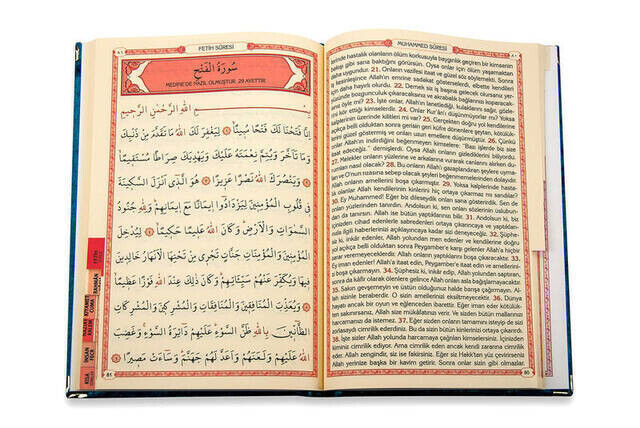 MUHAMMED SÛRESİ
lerinde hastalık olanların ölüm korkusuyla baygınlık geçiren bir kimsenin
bakışı gibi sana baktıklarını görürsün. Oysa onlar için ölüm yaşamaktan
daha uygundur. 21. Onların vazifesi itaat ve güzel söz söylemekti. Sonra
iş kesinleşince Allah'ın emrine sadakat gösterselerdi, elbette kendileri
için daha hayırlı olurdu. 22. Demek siz iş başına gelecek olursanız yer-
yüzünde bozgunculuk çıkaracaksınız ve akrabalık bağlarınızı koparacak-
sınız öyle mi? 23. İşte onlar, Allah'ın lanetlediği, kulaklarını sağır, gözle-
rini kör ettiği kimselerdir. 24. Onlar Kur'ân'ı düşünmüyorlar mı? Yoksa
kalplerinin üzerinde kilitleri mi var? 25. Gerçekten doğru yol kendilerine
açıkça belli olduktan sonra gerisin geri küfre dönenlere şeytan, kötülük-
lerini güzel göstermiş ve onları uzun emellere düşürmüştür. 26. Çünkü
onlar Allah'ın indirdiğini beğenmeyen kimselere: "Bazı işlerde biz size
itaat edeceğiz." demişlerdi. Oysa Allah onların gizlediklerini biliyordu.
27. Melekler onların yüzlerine ve arkalarına vurarak canlarını alırken du-
rumları nasıl olacak? 28. Bu onların Allah'ı gazaplandıran şeylere uyma-
ları ve O'nun rızasına sebep olacak şeyleri beğenmemelerinden dolayıdır.
Allah onların amellerini boşa çıkarmıştır. 29. Yoksa kalplerinde hastalık
olanlar Allah kendilerinin kinlerini hiç ortaya çıkarmaz mı sandılar?
30. Ey Muhammed! Eğer biz dileseydik onları sana gösterirdik. Sen de
onları yüzlerinden tanırdın. Andolsun ki, sen onları sözlerinin uslubun-
dan da tanırsın. Allah ise bütün yaptıklarınızı bilir. 31. Andolsun ki, biz
içinizden cihad edenlerle sabredenleri ortaya çıkarıncaya ve yaptıkları-
nızla ilgili haberlerinizi açıklayıncaya kadar sizi deneyeceğiz. 32. Şüphesiz
ki, inkâr edenler, Allah yolundan men edenler ve kendilerine doğru
yol açıkça belli olduktan sonra Peygamber'e karşı gelenler Allah'a hiçbir
zarar veremeyeceklerdir. Allah onların yaptıklarını boşa çıkaracaktır. 33.
Ey iman edenler! Allah'a itaat edin, Peygamber'e itaat edin ve amellerini-
zi boşa çıkarmayın. 34. Şüphesiz ki, inkâr edip, Allah yolundan saptıran,
sonra da kâfir olarak ölenlere gelince Allah onları asla bağışlamayacaktır.
35. Sakın gevşemeyin ve üstün olduğunuz halde barışa çağırmayın. Al-
lah sizinle beraberdir. O sizin amellerinizi eksiltmeyecektir. 36. Dünya
hayatı ancak bir oyun ve eğlenceden ibarettir. Eğer iman eder kötülükler-
den sakınırsanız, Allah size mükâfatınızı verir. Ve sizden bütün mallarınızı
harcamanızı da istemez. 37. Eğer sizden onların tamamını isteyip de sizi
zorlasaydı cimrilik ederdiniz. Bu da sizin bütün kinlerinizi ortaya çıkarırdı.
38. İşte sizler Allah yolunda harcamaya çağrılan kimselersiniz. İçinizden
kiminiz cimrilik ediyor. Ama cimrilik eden ancak kendi zararına cimrilik
eder. Allah zengindir, siz ise fakirsiniz. Eğer siz Hakk'tan yüz çevirirseniz
Allah yerinize başka bir kavim getirir. Sonra onlar sizin gibi olmazlar.
80
FETİH SÛRESİ
سُورَةُ الْفَتْحِ
MEDİNE'DE NAZİL OLMUŞTUR. 29 AYETTİR.
بِسْمِ اللّٰهِ الرَّحْمٰنِ الرَّحِيمِ
اِنَّا فَتَحْنَا لَكَ فَتْحًا مُبِينًا ﴿١﴾ لِيَغْفِرَ لَكَ اللّٰهُ مَا تَقَدَّمَ مِنْ ذَنْبِكَ
وَمَا تَاَخَّرَ وَيُتِمَّ نِعْمَتَهُ عَلَيْكَ وَيَهْدِيَكَ صِرَاطًا مُسْتَقِيمًا
﴿٢﴾ وَيَنْصُرَكَ اللّٰهُ نَصْرًا عَزِيزًا ﴿٣﴾ هُوَ الَّذِي اَنْزَلَ السَّكِينَةَ
فِي قُلُوبِ الْمُؤْمِنِينَ لِيَزْدَادُوا اِيمَانًا مَعَ اِيمَانِهِمْ وَلِلّٰهِ جُنُودُ
السَّمٰوَاتِ وَالْاَرْضِ وَكَانَ اللّٰهُ عَلِيمًا حَكِيمًا ﴿٤﴾ لِيُدْخِلَ
الْمُؤْمِنِينَ وَالْمُؤْمِنَاتِ جَنَّاتٍ تَجْرِي مِنْ تَحْتِهَا الْاَنْهَارُ خَالِدِينَ
فِيهَا وَيُكَفِّرَ عَنْهُمْ سَيِّئَاتِهِمْ وَكَانَ ذٰلِكَ عِنْدَ اللّٰهِ فَوْزًا عَظِيمًا
﴿٥﴾ وَيُعَذِّبَ الْمُنَافِقِينَ وَالْمُنَافِقَاتِ وَالْمُشْرِكِينَ وَالْمُشْرِكَاتِ
الظَّانِّينَ بِاللّٰهِ ظَنَّ السَّوْءِ عَلَيْهِمْ دَائِرَةُ السَّوْءِ وَغَضِبَ
اللّٰهُ عَلَيْهِمْ وَلَعَنَهُمْ وَاَعَدَّ لَهُمْ جَهَنَّمَ وَسَاءَتْ مَصِيرًا ﴿٦﴾
81
FETİH
RAHMÂN
KIYAMET
CUMA
İNSAN
FECR
KISA